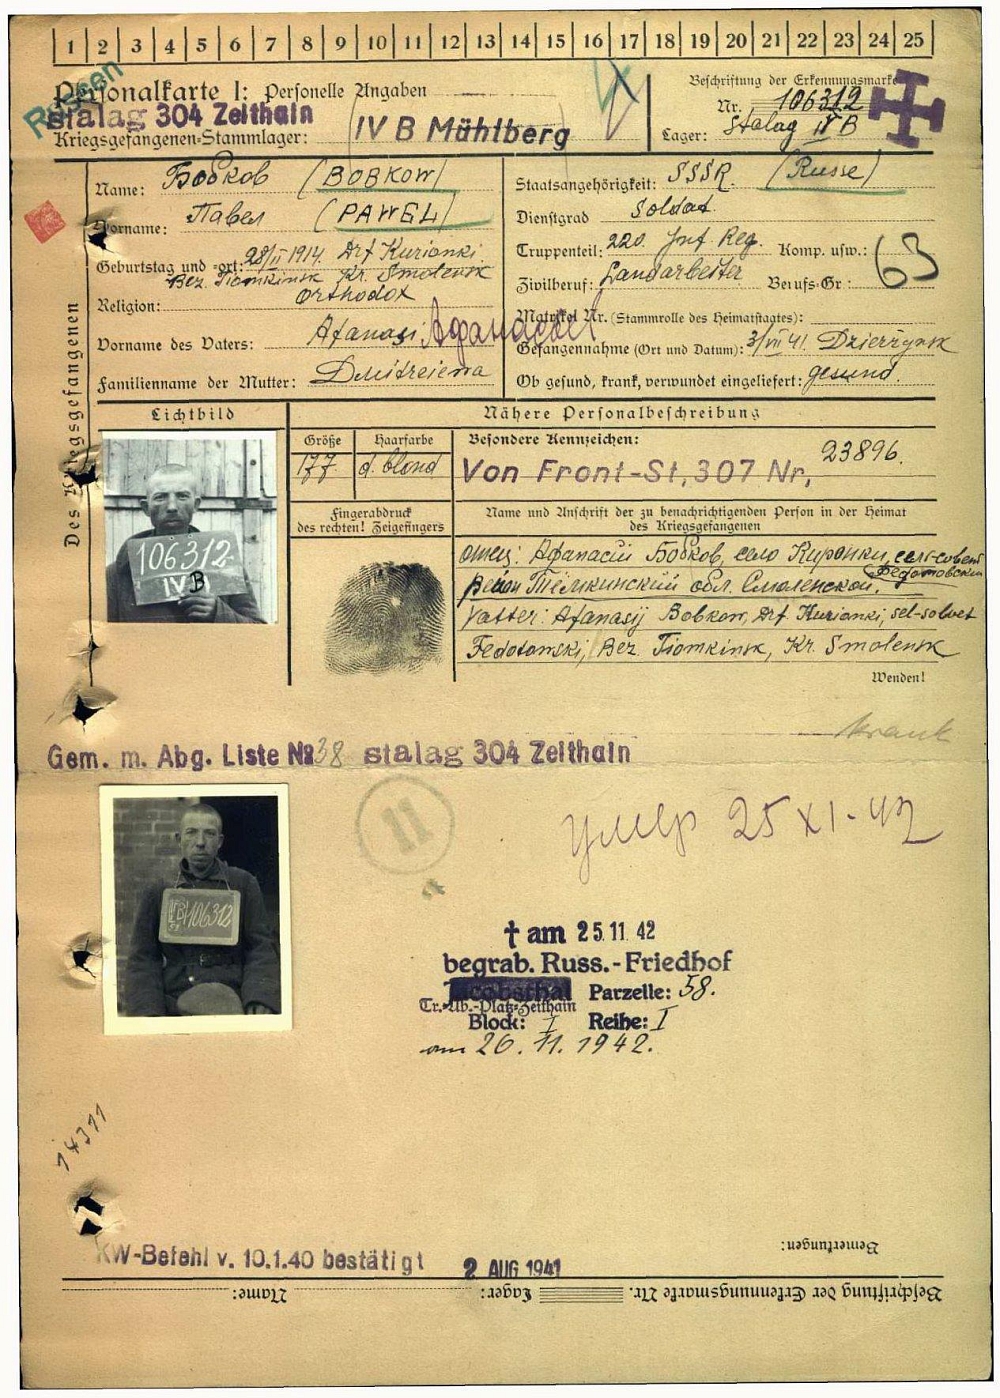 1 2 3 4 5 6 7 8 9 10 11 12 13 14 15 16 17 18 19 20 21 22 23 24 25
Russen
Personalkarte I: Personelle Angaben
Stalag 304 Zeithain
Kriegsgefangenen-Stammlager: IV B Mühlberg
Beschriftung der Erkennungsmarke
Nr. 106312
Lager: Stalag IV B
Des Kriegsgefangenen
Name: Бобков (BOBKOW)
Vorname: Павел (PAWEL)
Geburtstag und -ort: 28/II 1914. Drf Kurianki
Bez. Tiomkinsk Kr. Smolensk
Religion: Orthodox
Vorname des Vaters: Afanasi Афанасий
Familienname der Mutter: Dmitreiewa
Staatsangehörigkeit: SSSR. (Russe)
Dienstgrad Soldat
Truppenteil: 220. Inf Reg. Komp. usw.:
Zivilberuf: Landarbeiter Berufs-Gr.: 63
Matrikel Nr. (Stammrolle des Heimatstaates):
Gefangennahme (Ort und Datum): 3/VII 41. Dzierżynsk
Ob gesund, krank, verwundet eingeliefert: gesund.
Lichtbild
Nähere Personalbeschreibung
Größe Haarfarbe Besondere Kennzeichen:
177 d. blond Von Front-St, 307 Nr, 23896.
Fingerabdruck
des rechten! Zeigefingers
Name und Anschrift der zu benachrichtigenden Person in der Heimat
des Kriegsgefangenen
отец: Афанасий Бобков, село Киронки, сель-совет
Федотовский
район Тёмкинский обл. Смоленской.
Vatter: Afanasij Bobkow, Drf Kurianki, sel-solvet
Fedotowski, Bez. Tiomkinsk, Kr. Smolensk
Wenden!
106312
IV B
krank
Gem. m. Abg. Liste № 38 Stalag 304 Zeithain
11
умер 25 XI-42
106312
† am 25.11.42
begrab. Russ.-Friedhof
Jacobsthal Parzelle: 58.
Tr.-Üb.-Platz-Zeithain
Block: I Reihe: I
am 26.11.1942.
14311
KW-Befehl v. 10.1.40 bestätigt 2 AUG 1941
Bemerkungen:
Beschriftung der Erkennungsmarke Nr. Lager: Name: